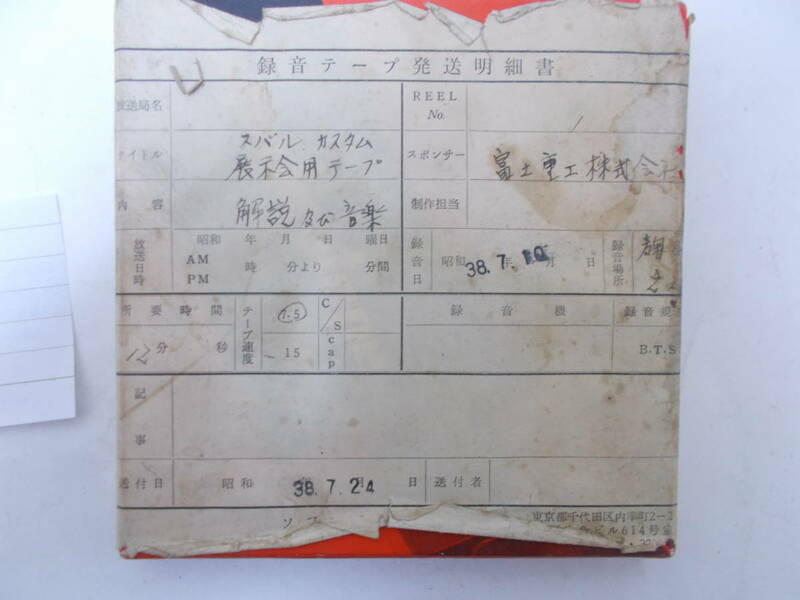 録音テープ発送明細書
放送局名
REEL No. 1
タイトル スバル カスタム
展示会用テープ
スポンサー 富士重工株式会社
内容 解説及び音楽
制作担当
放送日時 昭和 年 月 日 曜日
AM
PM 時 分より 分間
録音日 昭和 38.7.10 年 月 日
録音場所
所要時間 12分 秒
テープ速度 7.5
15
C/S
cap
録音機
録音規
B.T.S
記事
送付日 昭和 38.7.24 年 月 日 送付者
東京都千代田区内幸町2-
ビル614号室